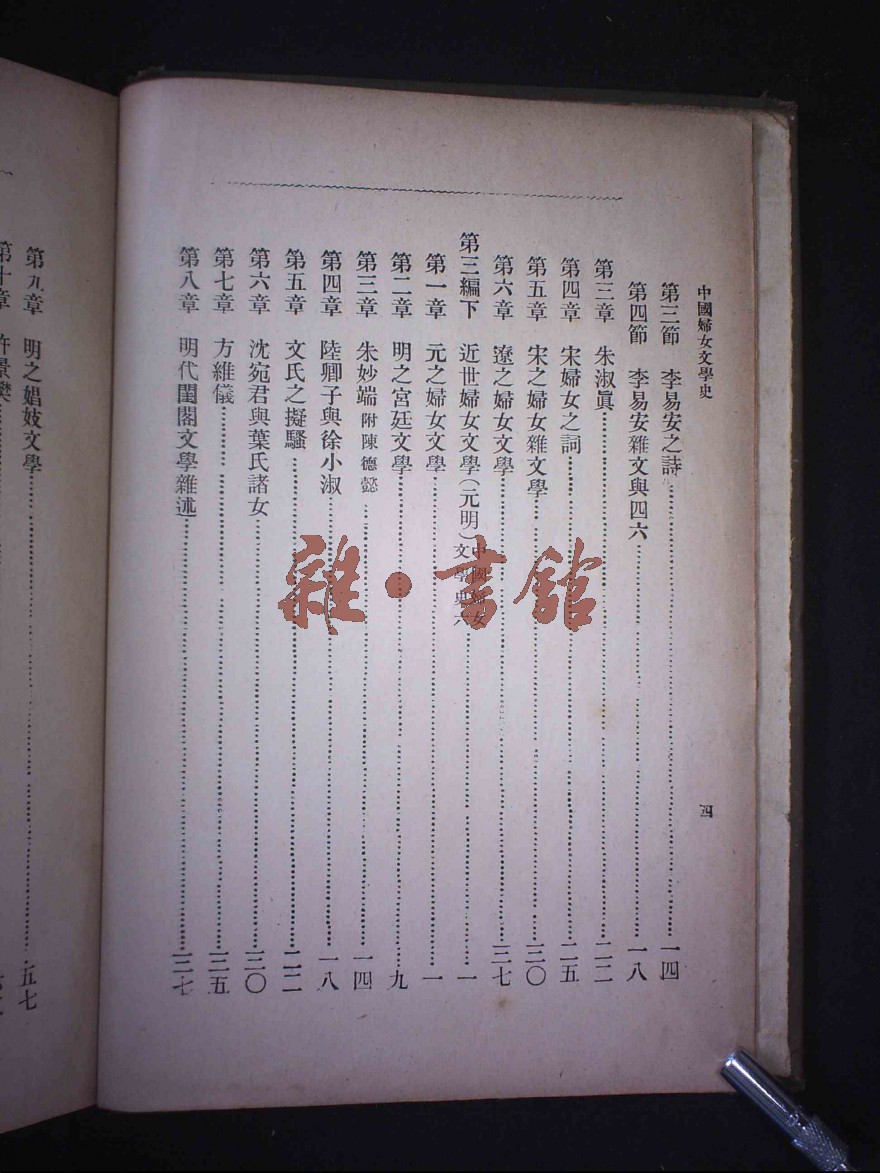 中國婦女文學史
四
第三節 李易安之詩 一四
第四節 李易安雜文與四六 一八
第三章 朱淑眞 二二
第四章 宋婦女之詞 二五
第五章 宋之婦女雜文學 三〇
第六章 遼之婦女文學 三七
第三編下 近世婦女文學(元明) 中國婦女文學史六 一
第一章 元之婦女文學 一
第二章 明之宮廷文學 九
第三章 朱妙端 附陳德懿 一四
第四章 陸卿子與徐小淑 一八
第五章 文氏之擬騷 二二
第六章 沈宛君與葉氏諸女 三〇
第七章 方維儀 三五
第八章 明代閨閣文學雜述 三七
第九章 明之娼妓文學 五七
第十章 許景樊
雜·書館